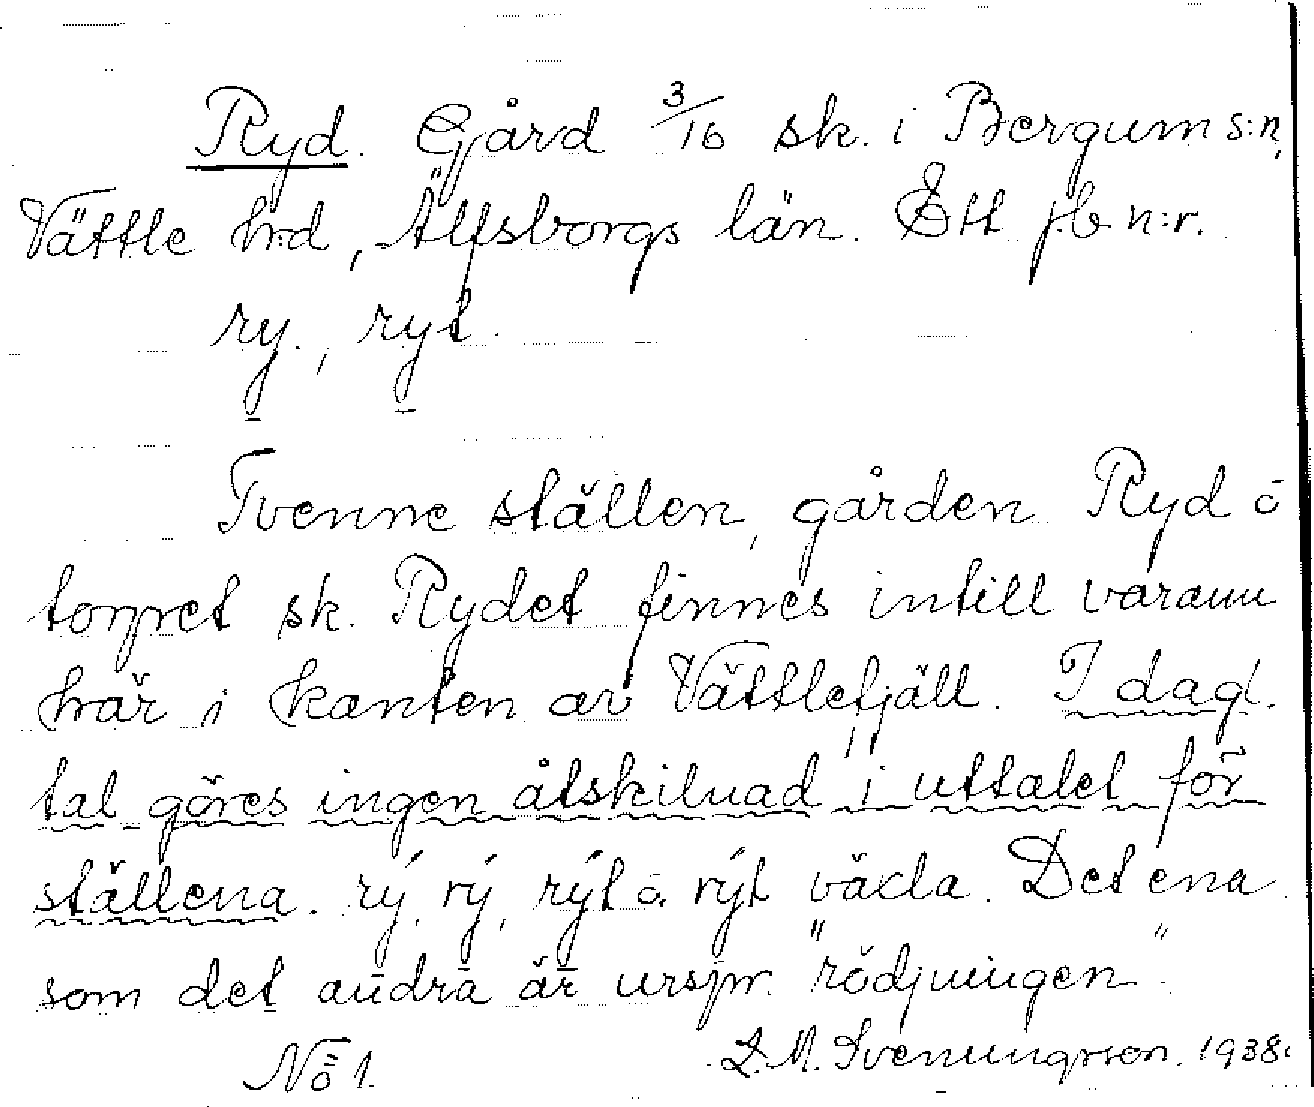 Ryd. Gård 3/16 sk. i Bergum s:n,
Vättle hrd, Älfsborgs län. Ett jb n:r.
ry., ryt.
Tvenne ställen, gården Ryd o
torpet sk. Rydet finnes intill varann
här i kanten av Vättlefjäll. I dagl.
tal göres ingen åtskilnad i uttalet för
ställena. rý, rý, rýt o. rýt växla. Det ena
som det andra är urspr. "rödjningen".
No 1. L. M. Svenungsson. 1938.